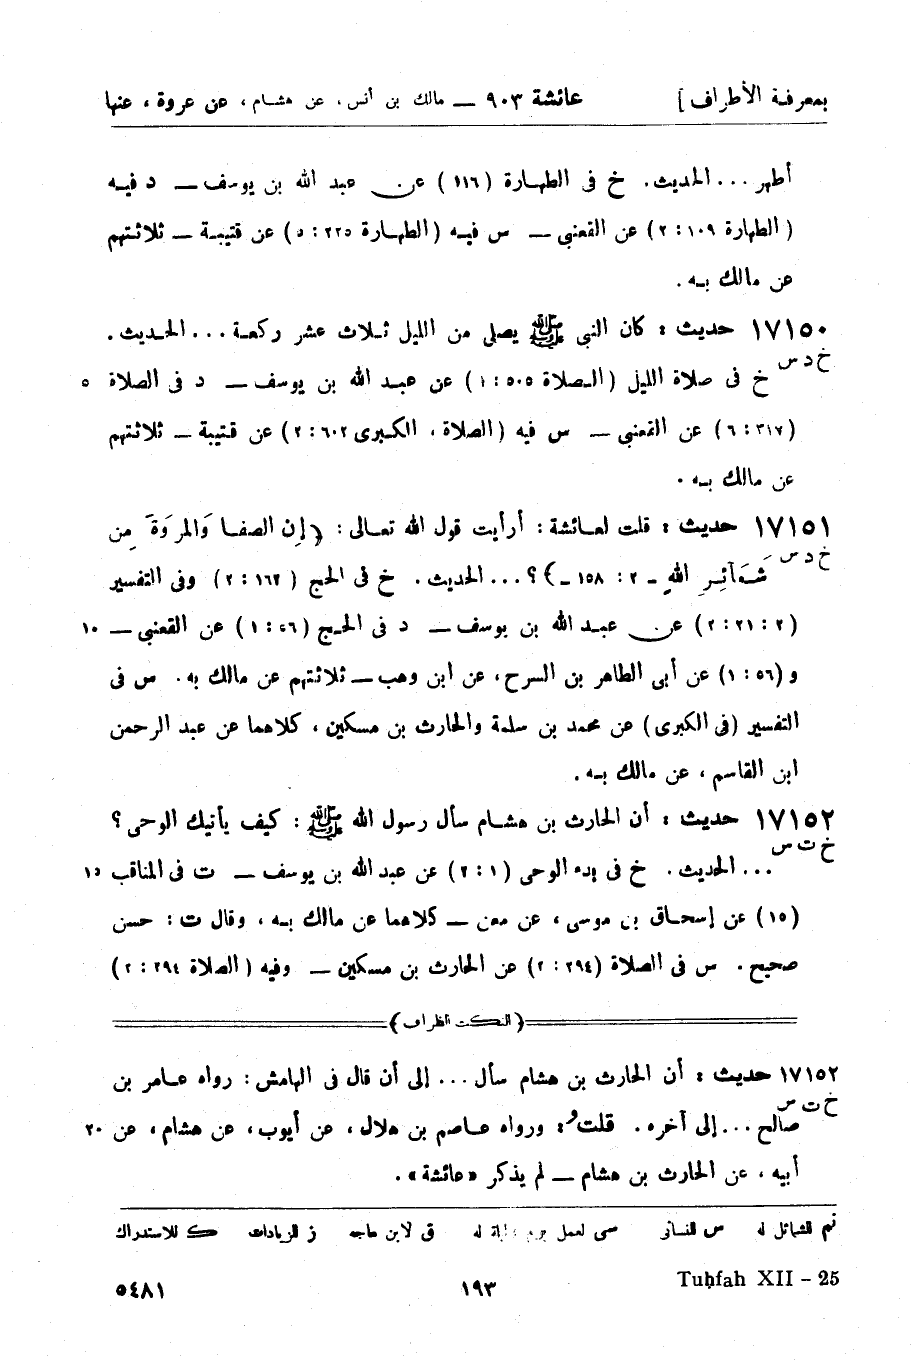 بمعرفة الأطراف ] عائشة ٩٠٣ — مالك بن أنس، عن هشام، عن عروة، عنها
أطهر ... الحديث. خ فى الطهارة (١١٦) عن عبد الله بن يوسف — د فيه
(الطهارة ١٠٩ : ٢) عن القعنبى — س فيه (الطهارة ٢٢٥ : ٥) عن قتيبة — ثلاثتهم
عن مالك به.
١٧١٥٠ حديث : كان النبى ﷺ يصلى من الليل ثلاث عشر ركعة ... الحديث.
خ د س
خ فى صلاة الليل (الصلاة ٥٠٥ : ١) عن عبد الله بن يوسف — د فى الصلاة ٥
(٣١٧ : ٦) عن القعنبى — س فيه (الصلاة، الكبرى ٦٠٢ : ٢) عن قتيبة — ثلاثتهم
عن مالك به.
١٧١٥١ حديث : قلت لعائشة : أرأيت قول الله تعالى : ﴿إن الصفا وَالمروَةَ مِن
خ د س
شَعَآئِرِ اللهِ - ٢ : ١٥٨ -﴾؟ ... الحديث. خ فى الحج (١٦٢ : ٢) وفى التفسير
(٢ : ٢١ : ٢) عن عبد الله بن يوسف — د فى الحج (٥٦ : ١) عن القعنبى — ١٠
و (٥٦ : ١) عن أبى الطاهر بن السرح، عن ابن وهب — ثلاثتهم عن مالك به. س فى
التفسير (فى الكبرى) عن محمد بن سلمة والحارث بن مسكين، كلاهما عن عبد الرحمن
ابن القاسم، عن مالك به.
١٧١٥٢ حديث : أن الحارث بن هشام سأل رسول الله ﷺ : كيف يأتيك الوحى؟
خ ت س
... الحديث. خ فى بدء الوحى (١ : ٢) عن عبد الله بن يوسف — ت فى المناقب ١٥
(١٥) عن إسحاق بن موسى، عن معن — كلاهما عن مالك به، وقال ت : حسن
صحيح. س فى الصلاة (٢٩٤ : ٢) عن الحارث بن مسكين — وفيه (الصلاة ٢٩٤ : ٢)
﴿النكت الظراف﴾
١٧١٥٢ حديث : أن الحارث بن هشام سأل ... إلى أن قال فى الهامش : رواه عامر بن
خ ت س
صالح ... إلى آخره. قلت : ورواه عاصم بن هلال، عن أيوب، عن هشام، عن ٢٠
أبيه، عن الحارث بن هشام — لم يذكر «عائشة».
تم للشمائل له س للنسائى سى لعمل يوم وليلة له ق لابن ماجه ز للزيادات ك للاستدراك
Tuḥfah XII – 25 ١٩٣ ٥٤٨١